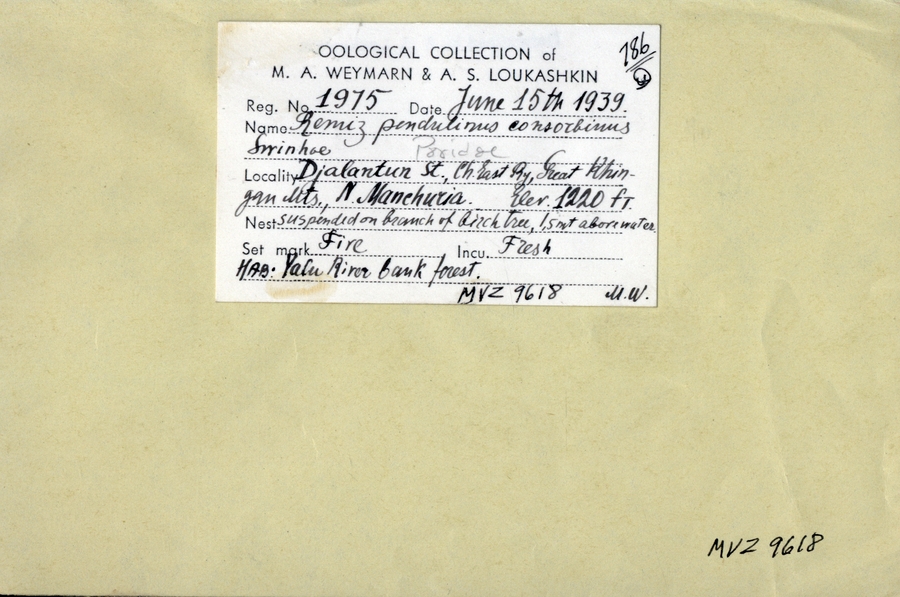 OOLOGICAL COLLECTION of
M. A. WEYMARN & A. S. LOUKASHKIN
786
Reg. No. 1975 Date June 15th 1939.
Name Remiz pendulinus consorbinus
Swinhoe Paridae
Locality Djalantun St., Ch. East Ry, Great Khin-
gan Mts., N. Manchuria. Elev. 1220 ft.
Nest suspended on branch of birch tree, 1,5 mt above water.
Set mark Five Incu. Fresh
HAB: Yalu River bank forest.
MVZ 9618 M.W.
MVZ 9618